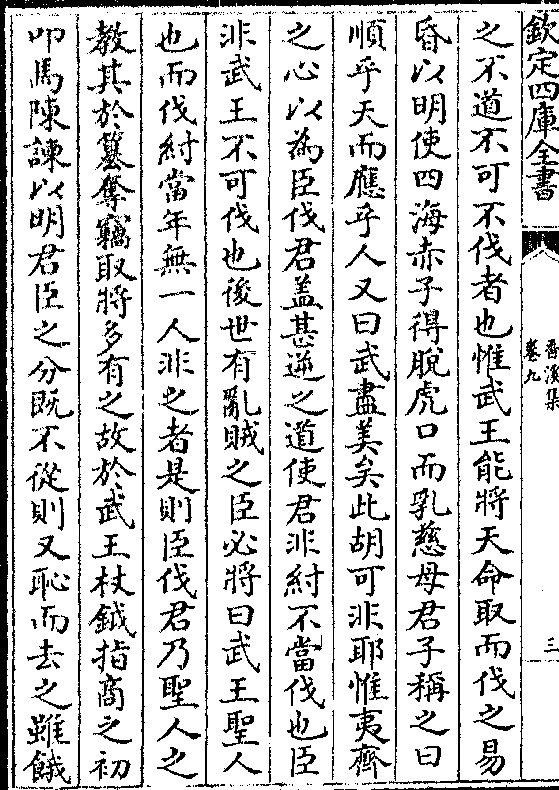 欽定四庫全書
香溪集
卷九
三
之不道不可不伐者也惟武王能將天命取而伐之易
昏以明使四海赤子得脫虎口而乳慈母君子稱之曰
順乎天而應乎人又曰武盡美矣此胡可非耶惟夷齊
之心以為臣伐君盖甚逆之道使君非紂不當伐也臣
非武王不可伐也後世有亂賊之臣必將曰武王聖人
也而伐紂當年無一人非之者是則臣伐君乃聖人之
教其於簒奪竊取將多有之故於武王杖鉞指商之初
叩馬陳諫以明君臣之分既不從則又恥而去之雖餓